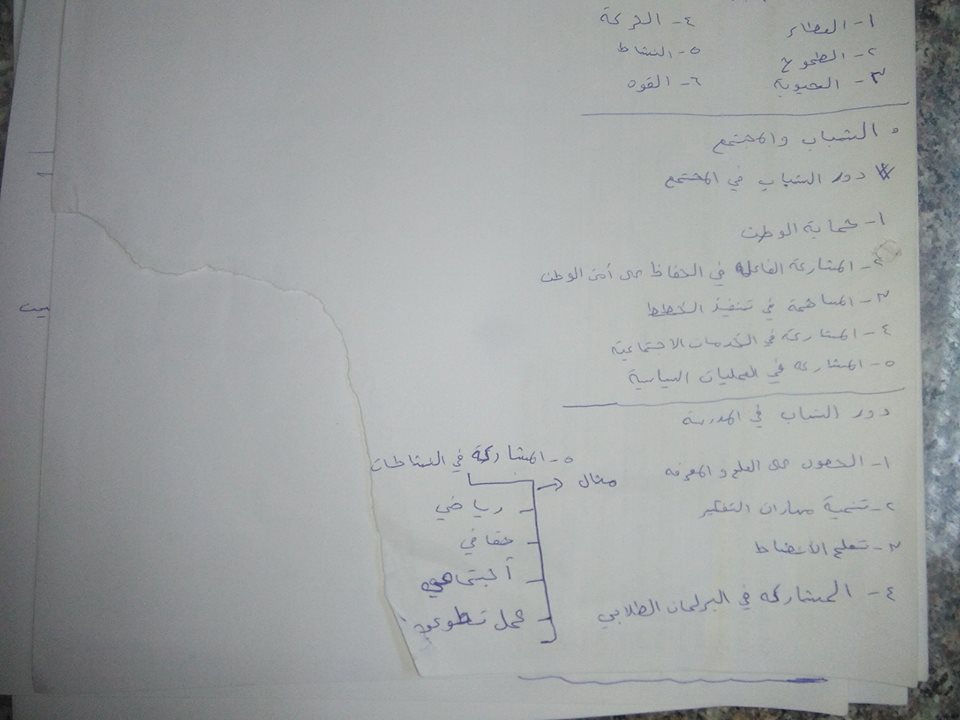 ١- العطاء ٤- السرعة
٢- الطموح ٥- النشاط
٣- الحيوية ٦- القوه
الشباب والمجتمع
دور الشباب في المجتمع
١- حماية الوطن
٢- المشاركة الفاعله في الحفاظ على أمن الوطن
٣- المساهمة في تنفيذ الخطط
٤- المشاركة في الخدمات الاجتماعية
٥- المشاركه في العمليات السياسية
دور الشباب في المدرسه
١- الحصول على العلم والمعرفه
٢- تنمية مهارات التفكير
٣- تعلم الأنضباط
٤- المشاركه في البرلمان الطلابي
٥- المشاركة في النشاطات
مثال
رياضي
ثقافي
أجتماعي
عمل تطوعي